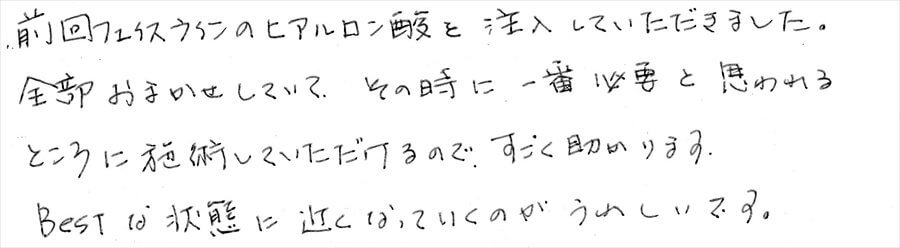 前回フェイスラインのヒアルロン酸を注入していただきました。
全部おまかせしていて、その時に一番必要と思われる
ところに施術していただけるので、すごく助かります。
BesTな状態に近くなっていくのがうれしいです。